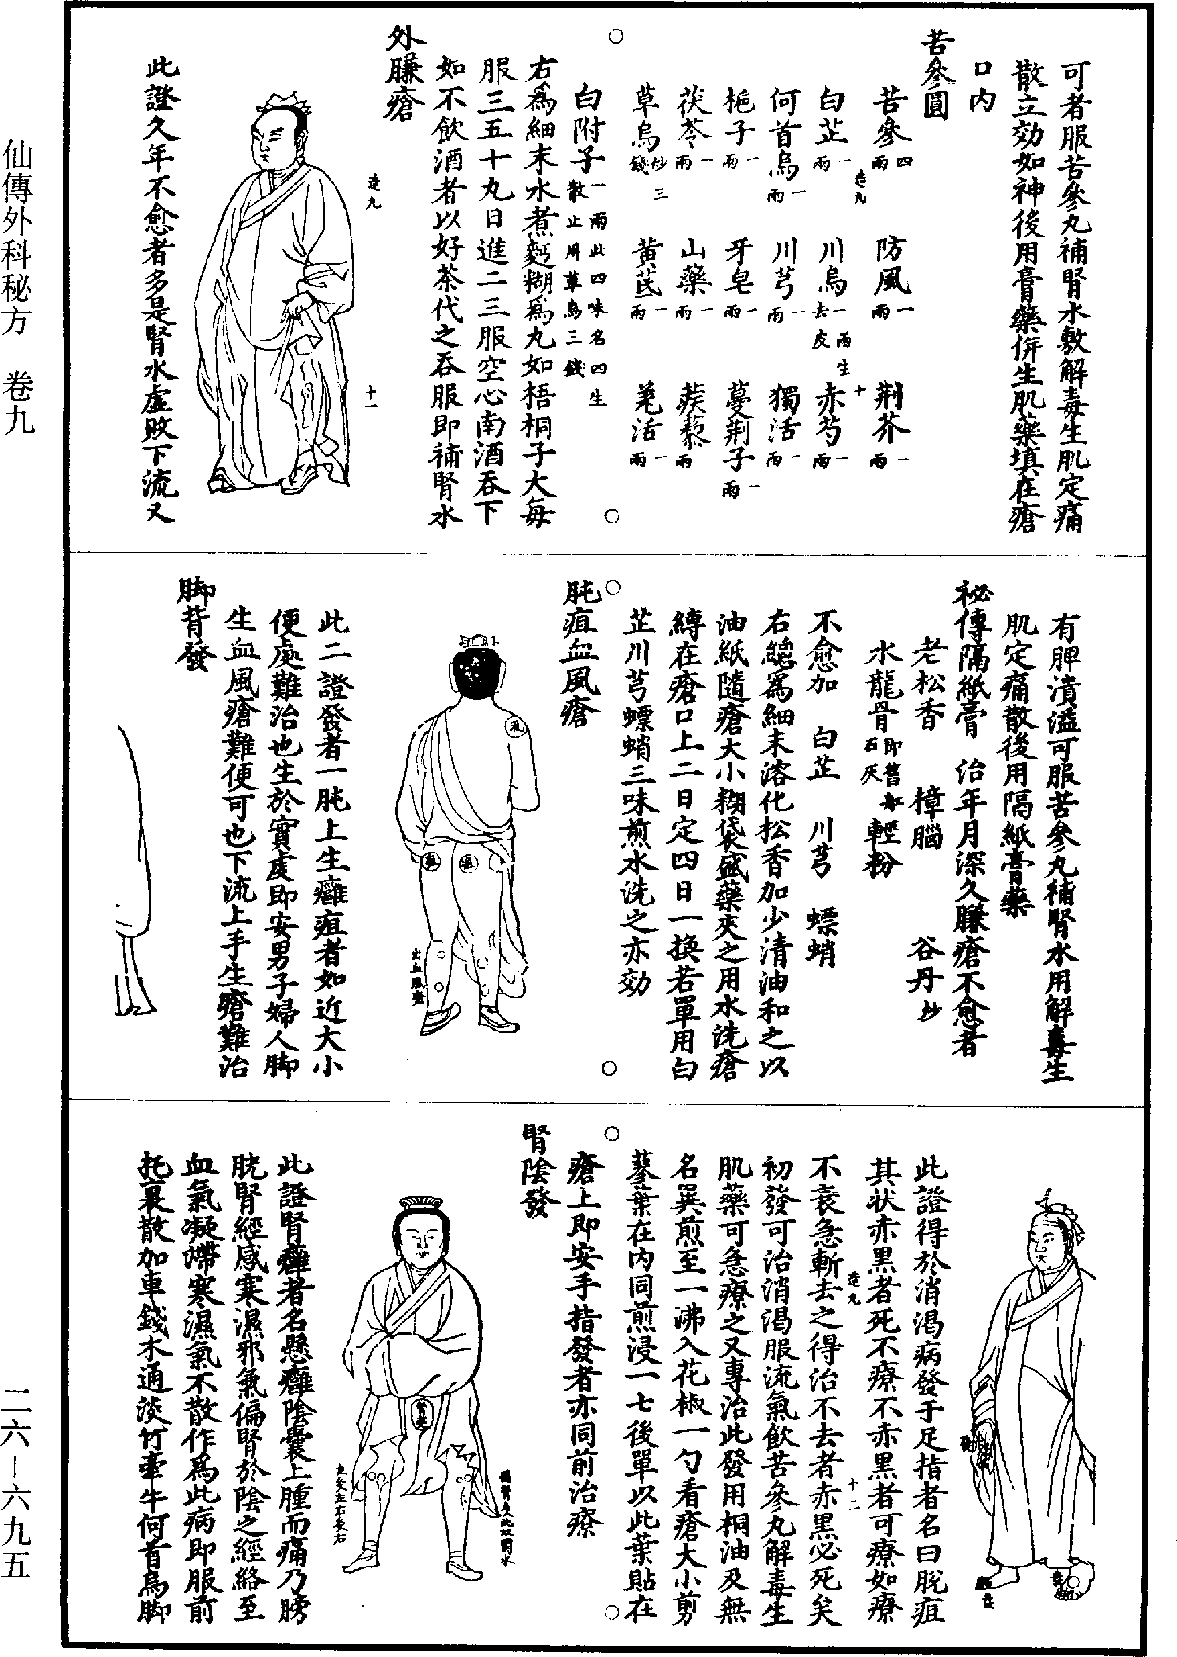 可者服苦參丸補腎水敷解毒生肌定痛
散立効如神後用膏藥併生肌藥填在瘡
口內
苦參圓
苦參四兩 防風一兩 荆芥一兩
白芷一兩 川烏一兩生去皮 赤芍一兩
何首烏一兩 川芎一兩 獨活一兩
梔子一兩 牙皂一兩 蔓荊子一兩
茯苓一兩 山藥一兩 蒺藜一兩
草烏炒三錢 黃芪一兩 羌活一兩
白附子一兩此四味名四生散止用草烏三錢
右爲細末水煮麪糊爲丸如梧桐子大每
服三五十九日進二三服空心南酒吞下
如不飲酒者以好茶代之吞服即補腎水
外臁瘡
此證久年不愈者多是腎水虛敗下流又
有脾漬溢可服苦參丸補腎水用解毒生
肌定痛散後用隔紙膏藥
祕傳隔紙膏 治年月深久臁瘡不愈者
老松香 樟腦 谷丹炒
水龍骨即舊石灰 輕粉
不愈加 白芷 川芎 螵蛸
右總爲細末溶化松香加少清油和之以
油紙隨瘡大小糊袋盛藥夾之用水洗瘡
縳在瘡口上二日定四日一換若單用白
芷川芎螵蛸三味煎水洗之亦効
肫疽血風瘡
此二證發者一肫上生癰疽者如近大小
便處難治也生於實處即安男子婦人脚
生血風瘡難便可也下流上手生瘡難治
脚背發
此證得於消渴病發于足指者名曰脫疽
其状赤黑者死不療不赤黑者可療如療
不衰急斬去之得治不去者赤黑必死矣
初發可治消渴服流氣飲苦參丸解毒生
肌藥可急療之又專治此發用桐油及無
名異煎至一沸入花椒一勺看瘡大小剪
蓼葉在內同煎浸一七後單以此葉貼在
瘡上即安手指發者亦同前治療
腎陰發
此證腎癰者名懸癰陰囊上腫而痛乃膀
胱腎經感寒濕邪氣偏腎於陰之經絡至
血氣凝滯寒濕氣不散作爲此病即服前
托裏散加車錢木通淡竹牽牛何首烏脚
仙傳外科秘方 卷九
二六—六九五